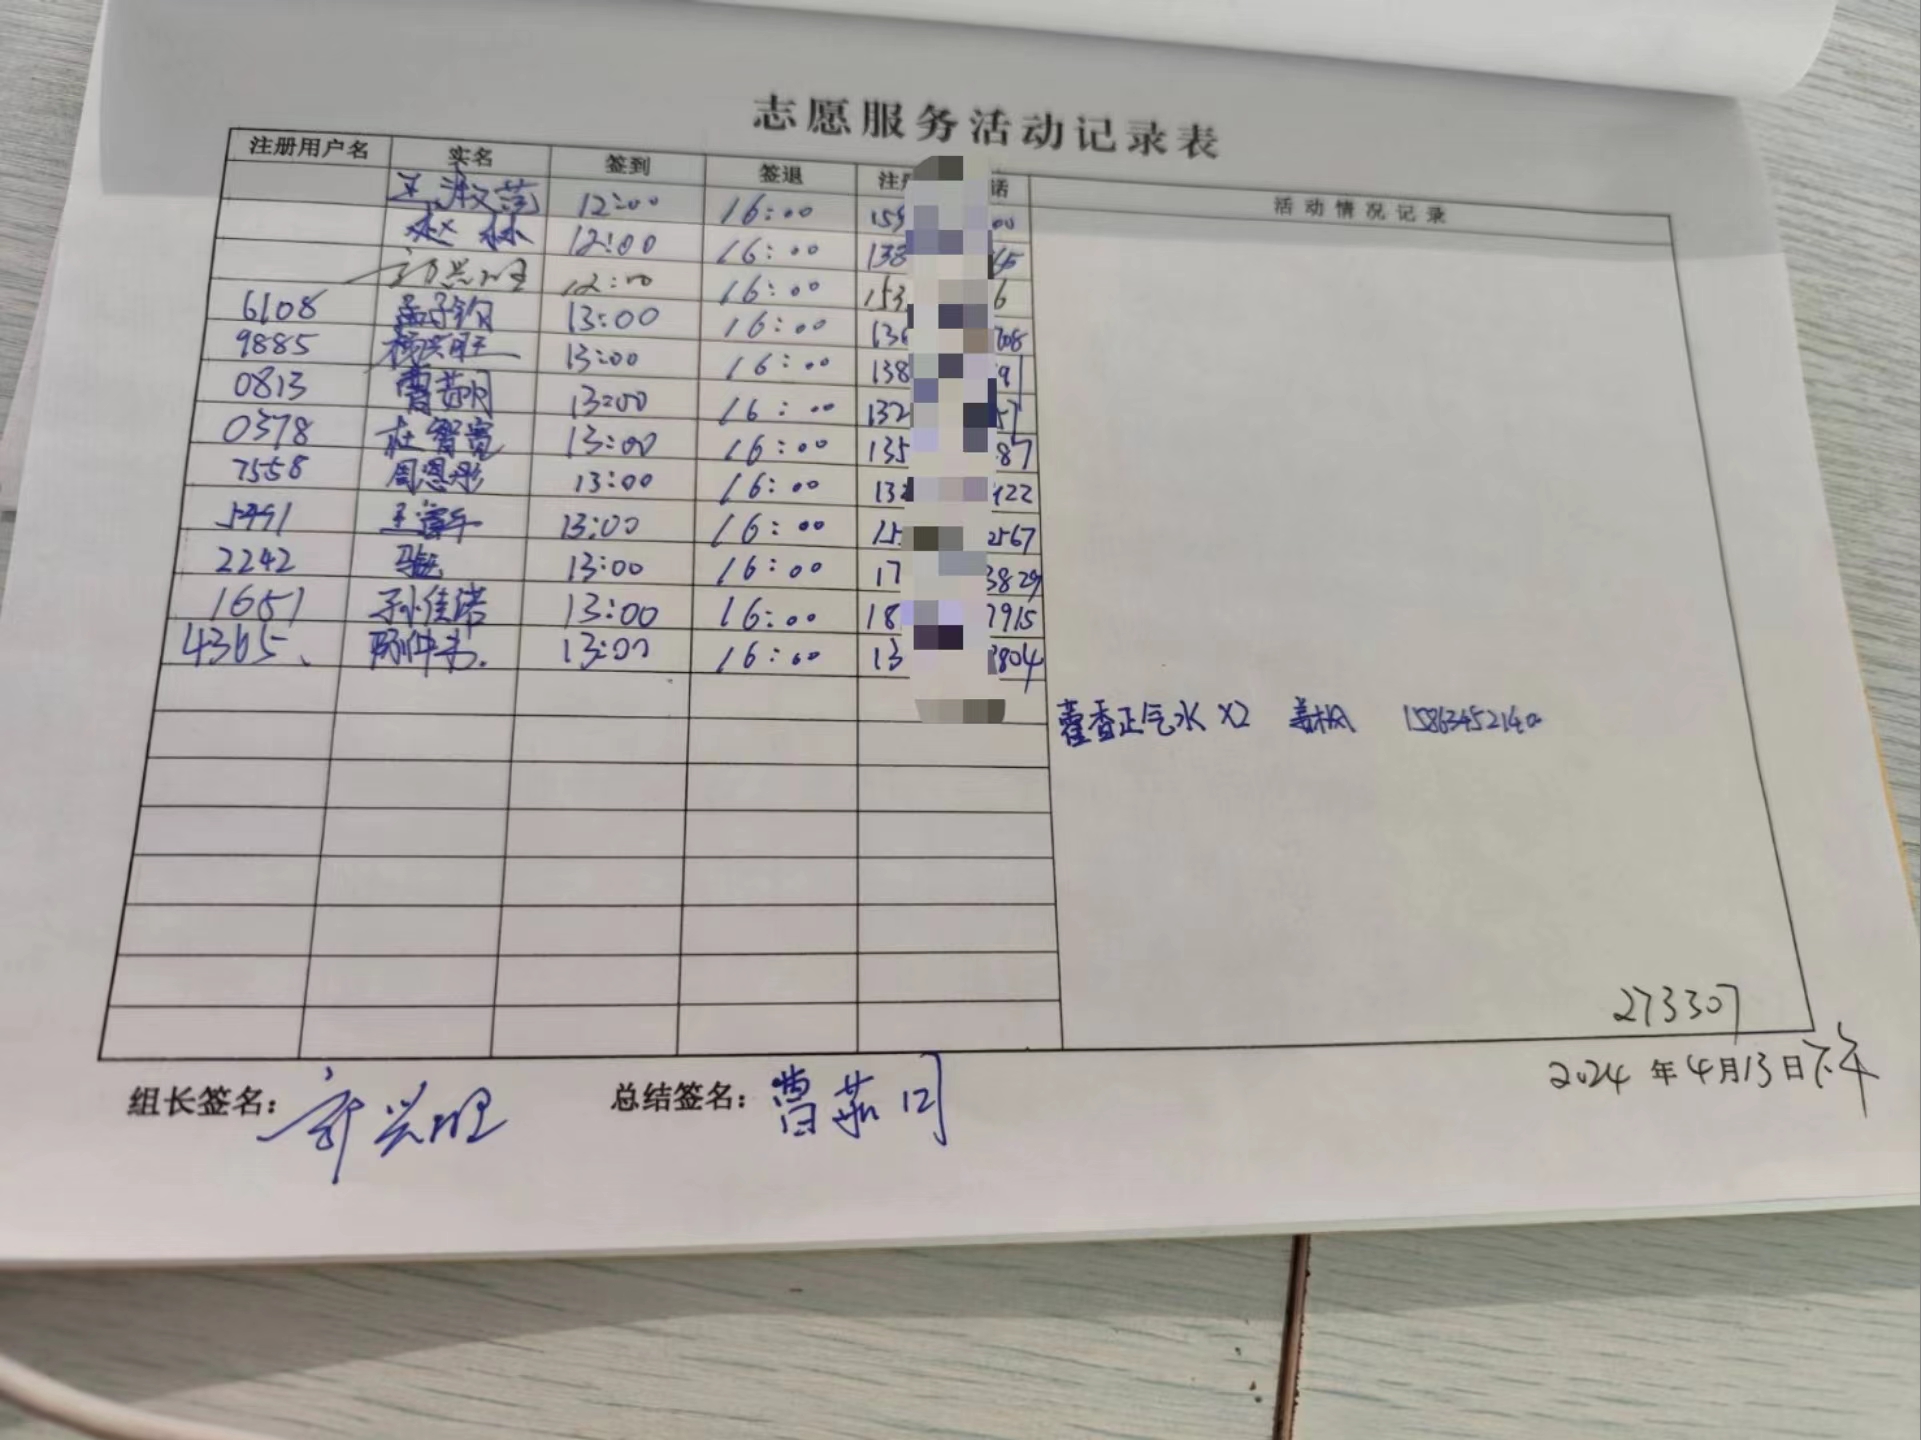 志愿服务活动记录表
注册用户名 实名 签到 签退 注册 话 活动情况记录
王淑莲 12:00 16:00 159 00
赵林 12:00 16:00 138 45
12:00 16:00 153 6
6108 孟子钧 13:00 16:00 136 708
9885 杨兴旺 13:00 16:00 138 91
0813 曹茹月 13:00 16:00 132 57
0378 杜智宽 13:00 16:00 135 87
7558 周恩彤 13:00 16:00 13 422
5491 王 13:00 16:00 15 2567
2242 马 13:00 16:00 17 3829
1651 孙佳诺 13:00 16:00 18 7915
4365、 13:00 16:00 13 804
藿香正气水 X2 1586345214
273307
2024 年 4月13日 下午
组长签名： 总结签名： 曹茹